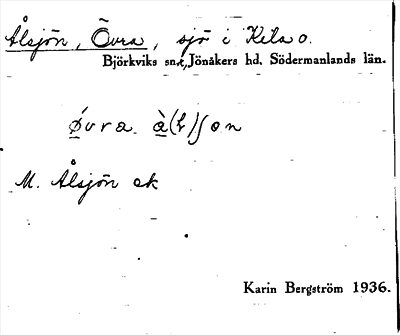 Ålsjön, Övra, sjö i Kila o.
Björkviks sn., Jönåkers hd, Södermanlands län.
ǿvra à(l)ʃon
M. Ålsjön ek
Karin Bergström 1936.